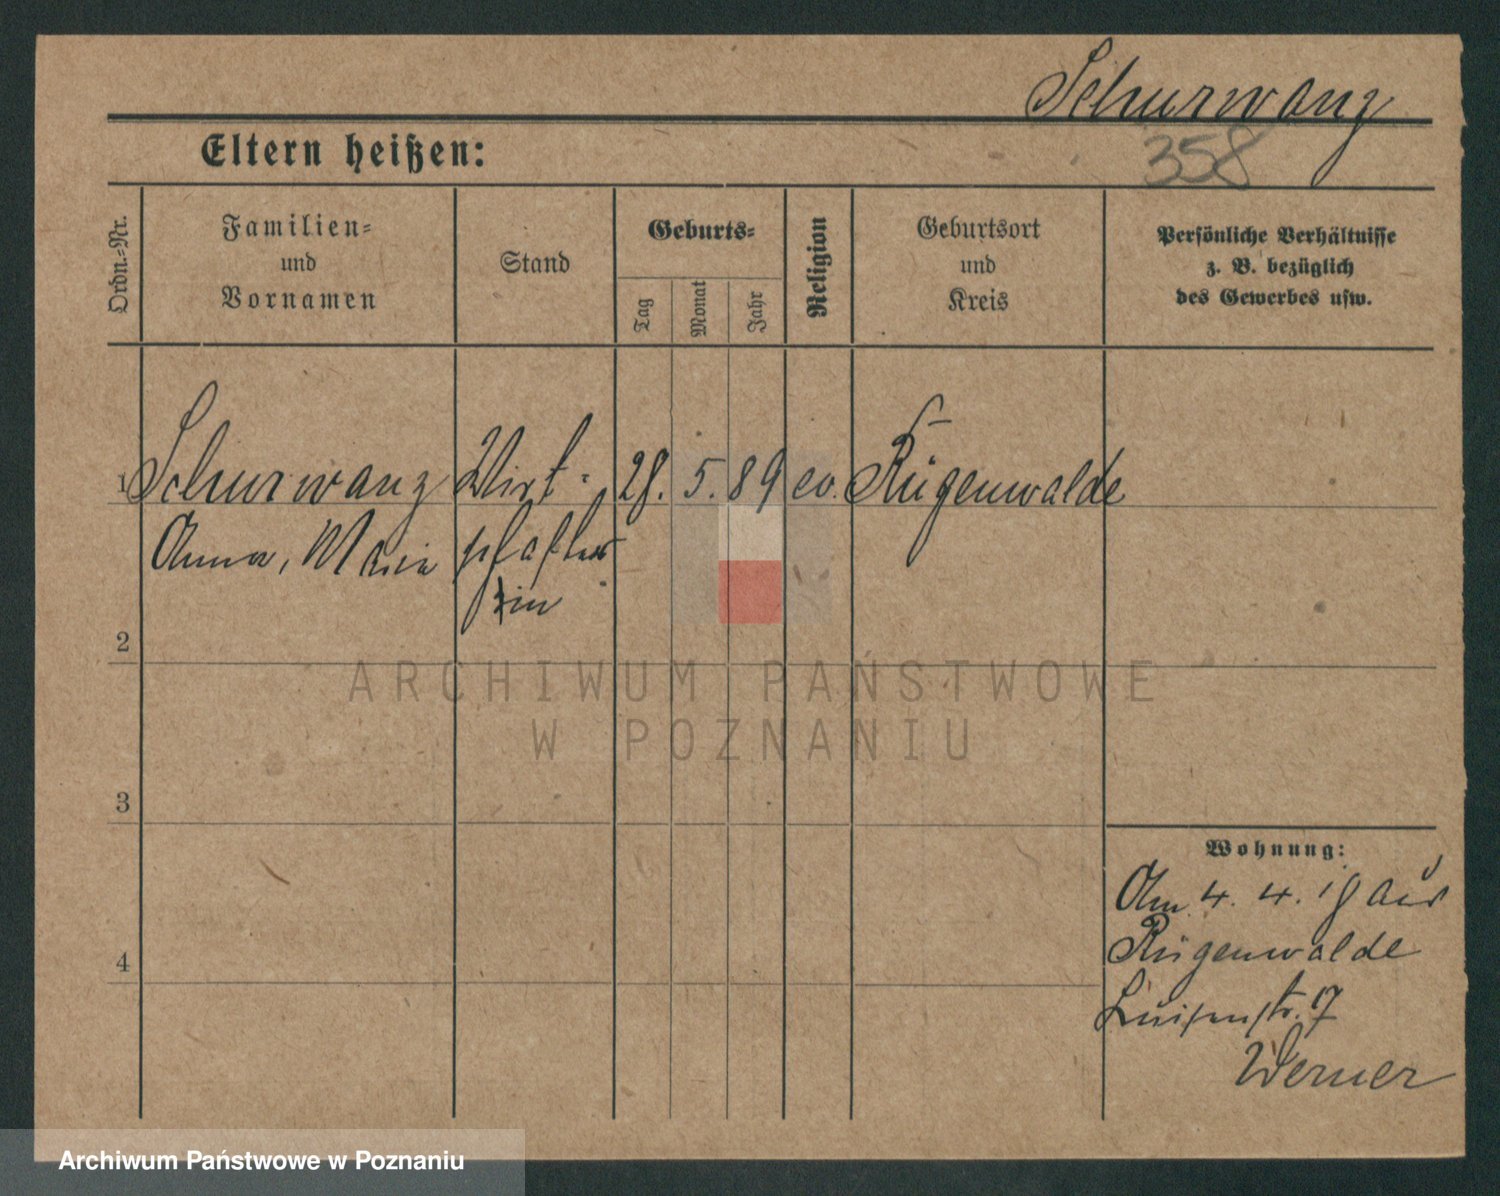 Schurwanz
358
Eltern heißen:
Ordn.-Nr.
Familien-
und
Vornamen
Stand
Geburts-
Tag
Monat
Jahr
Religion
Geburtsort
und
Kreis
Persönliche Verhältnisse
z. B. bezüglich
des Gewerbes usw.
1 Schurwanz Wirt- 28. 5. 89 ev. Rügenwalde
Anna, Marie schafter
in
2
3
4
Wohnung:
Am 4. 4. 18 aus
Rügenwalde
Luisenstr. 7
Werner
ARCHIWUM PAŃSTWOWE
W POZNANIU
Archiwum Państwowe w Poznaniu